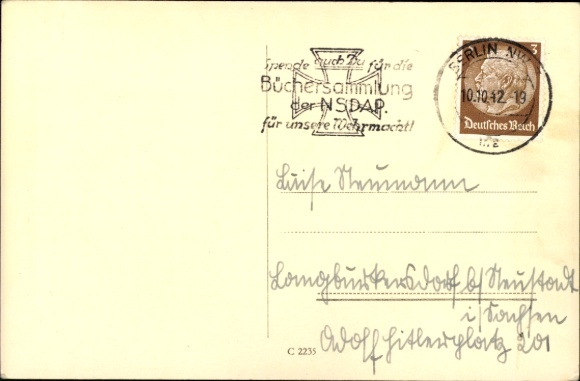 Spende auch Du für die
Büchersammlung
der NSDAP.
für unsere Wehrmacht!
BERLIN NW
10.10.42.-19
3
Deutsches Reich
Luise Neumann
Langburkersdorf b/Neustadt
i/Sachsen
Adolf Hitlerplatz 201
C 2235